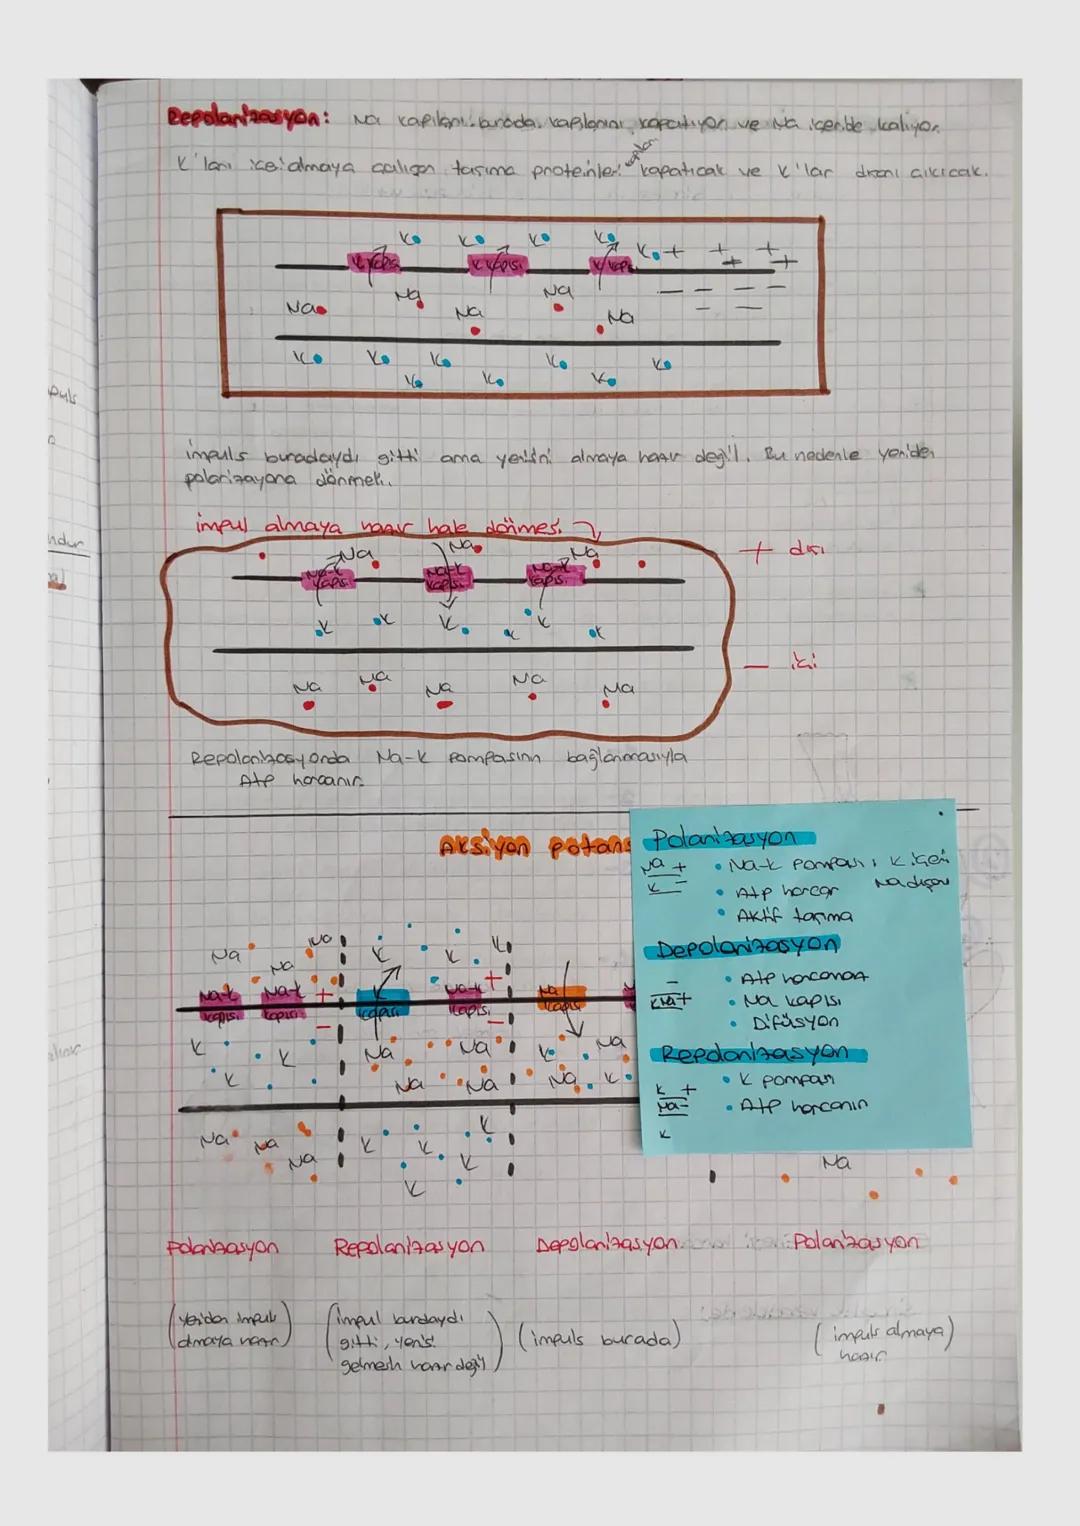 Repolarizasyon: Na kapıları burada kapılarını kapatıyor ve Na içeride kalıyor.
kapıları
K'ları içeri almaya çalışan taşıma proteinleri kapatıcak ve K'lar dışarı çıkıcak.
K K K K K + + + + +
K kapısı K kapısı K kapısı
Na Na Na Na Na
K K K K K K
K K
impuls buradaydı gitti ama yenisini almaya hazır değil. Bu nedenle yeniden
polarizayona dönmeli.
impul almaya hazır hale dönmesi
Na Na Na
Na-K kapısı Na-K kapısı Na-K kapısı
+ dışı
K K K K K K
- içi
Na Na Na Na Na
Repolarizasyonda Na-K pompasının bağlanmasıyla
Atp harcanır.
Aksiyon potans
Polarizasyon
Na +
K -
• Na-K pompası, K içeri
Na dışarı
• Atp harcar
• Aktif taşıma
Depolarizasyon
-
K Na +
• Atp harcamaz
• Na kapısı
• Difüsyon
Repolarizasyon
K +
Na -
K
• K pompası
• Atp harcanır
Na Na Na K K K
Na-K kapısı Na-K kapısı + K kapısı Na-K kapısı + Na kapısı
- -
K K K Na Na Na Na K Na Na K
Na Na Na K K K K K Na
Polarizasyon Repolarizasyon Depolarizasyon Polarizasyon
(yeniden impuls
almaya hazır)
(impul burdaydı
gitti, yenisi
gelmesin hazır değil)
(impuls burada)
(impuls almaya)
hazır
puls